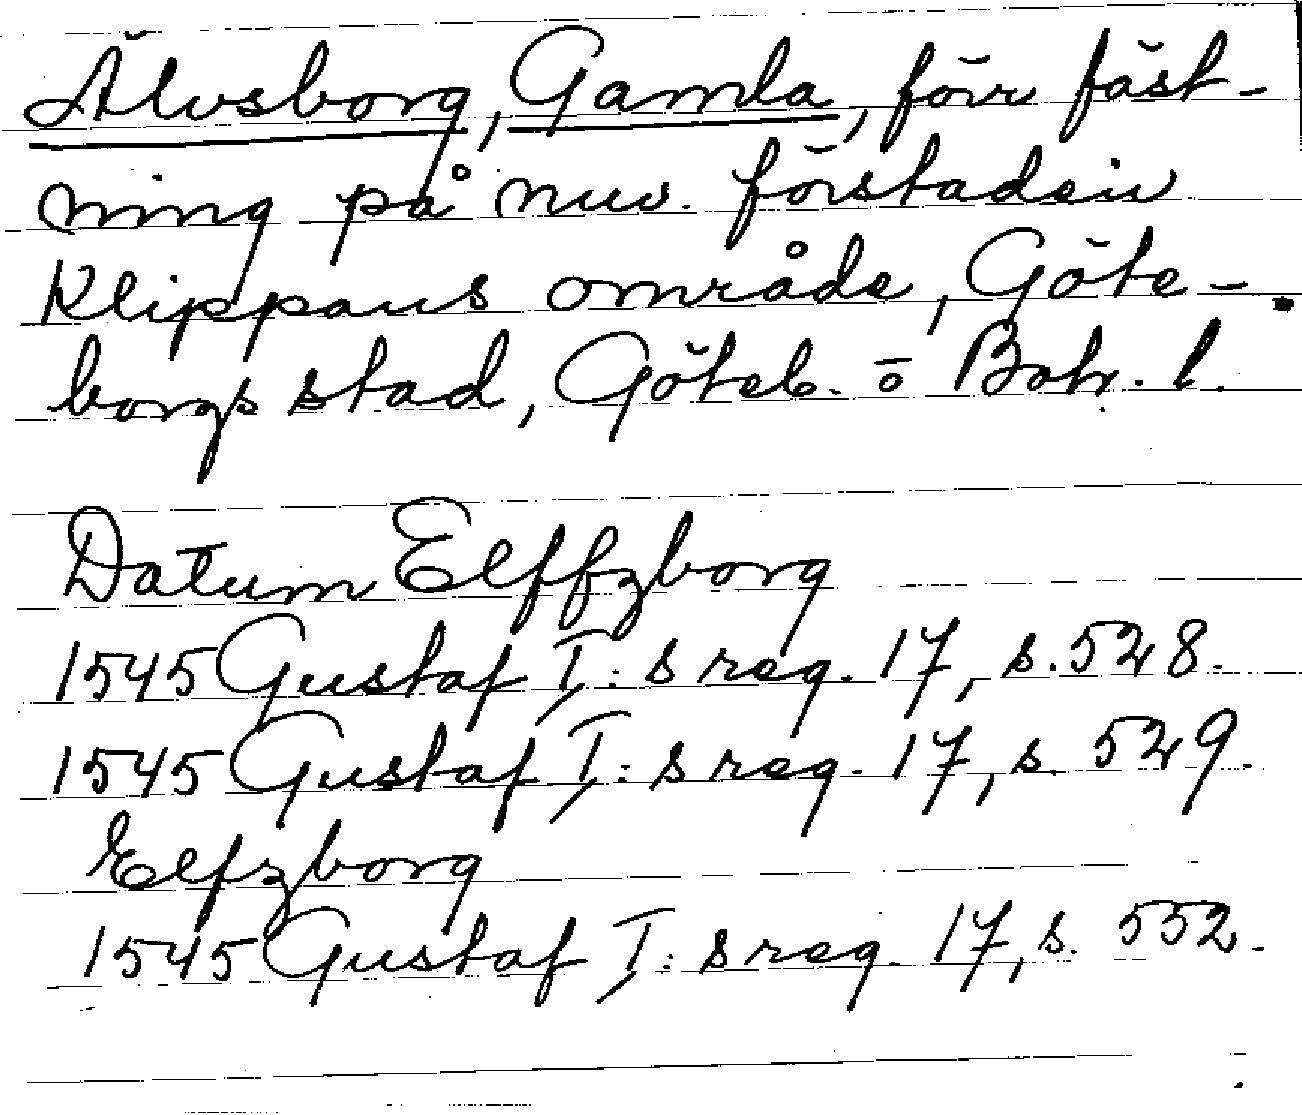 Älvsborg, Gamla, förr fäst-
ning på nuv. förstaden
Klippans område, Göte-
borgs stad, Göteb. o Boh. l.
Datum Elffzborg
1545 Gustaf I:s reg. 17, s. 528.
1545 Gustaf I:s reg. 17, s. 529.
Elfzborg
1545 Gustaf I:s reg. 17, s. 552.